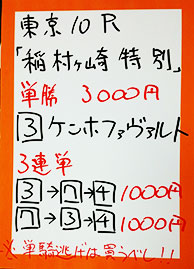 東京10R
「稲村ヶ崎特別」
単勝 3000円
3 ケンホファヴァルト
3連単
3→7→4 1000円
7→3→4 1000円
※単騎逃げは買うべし!!